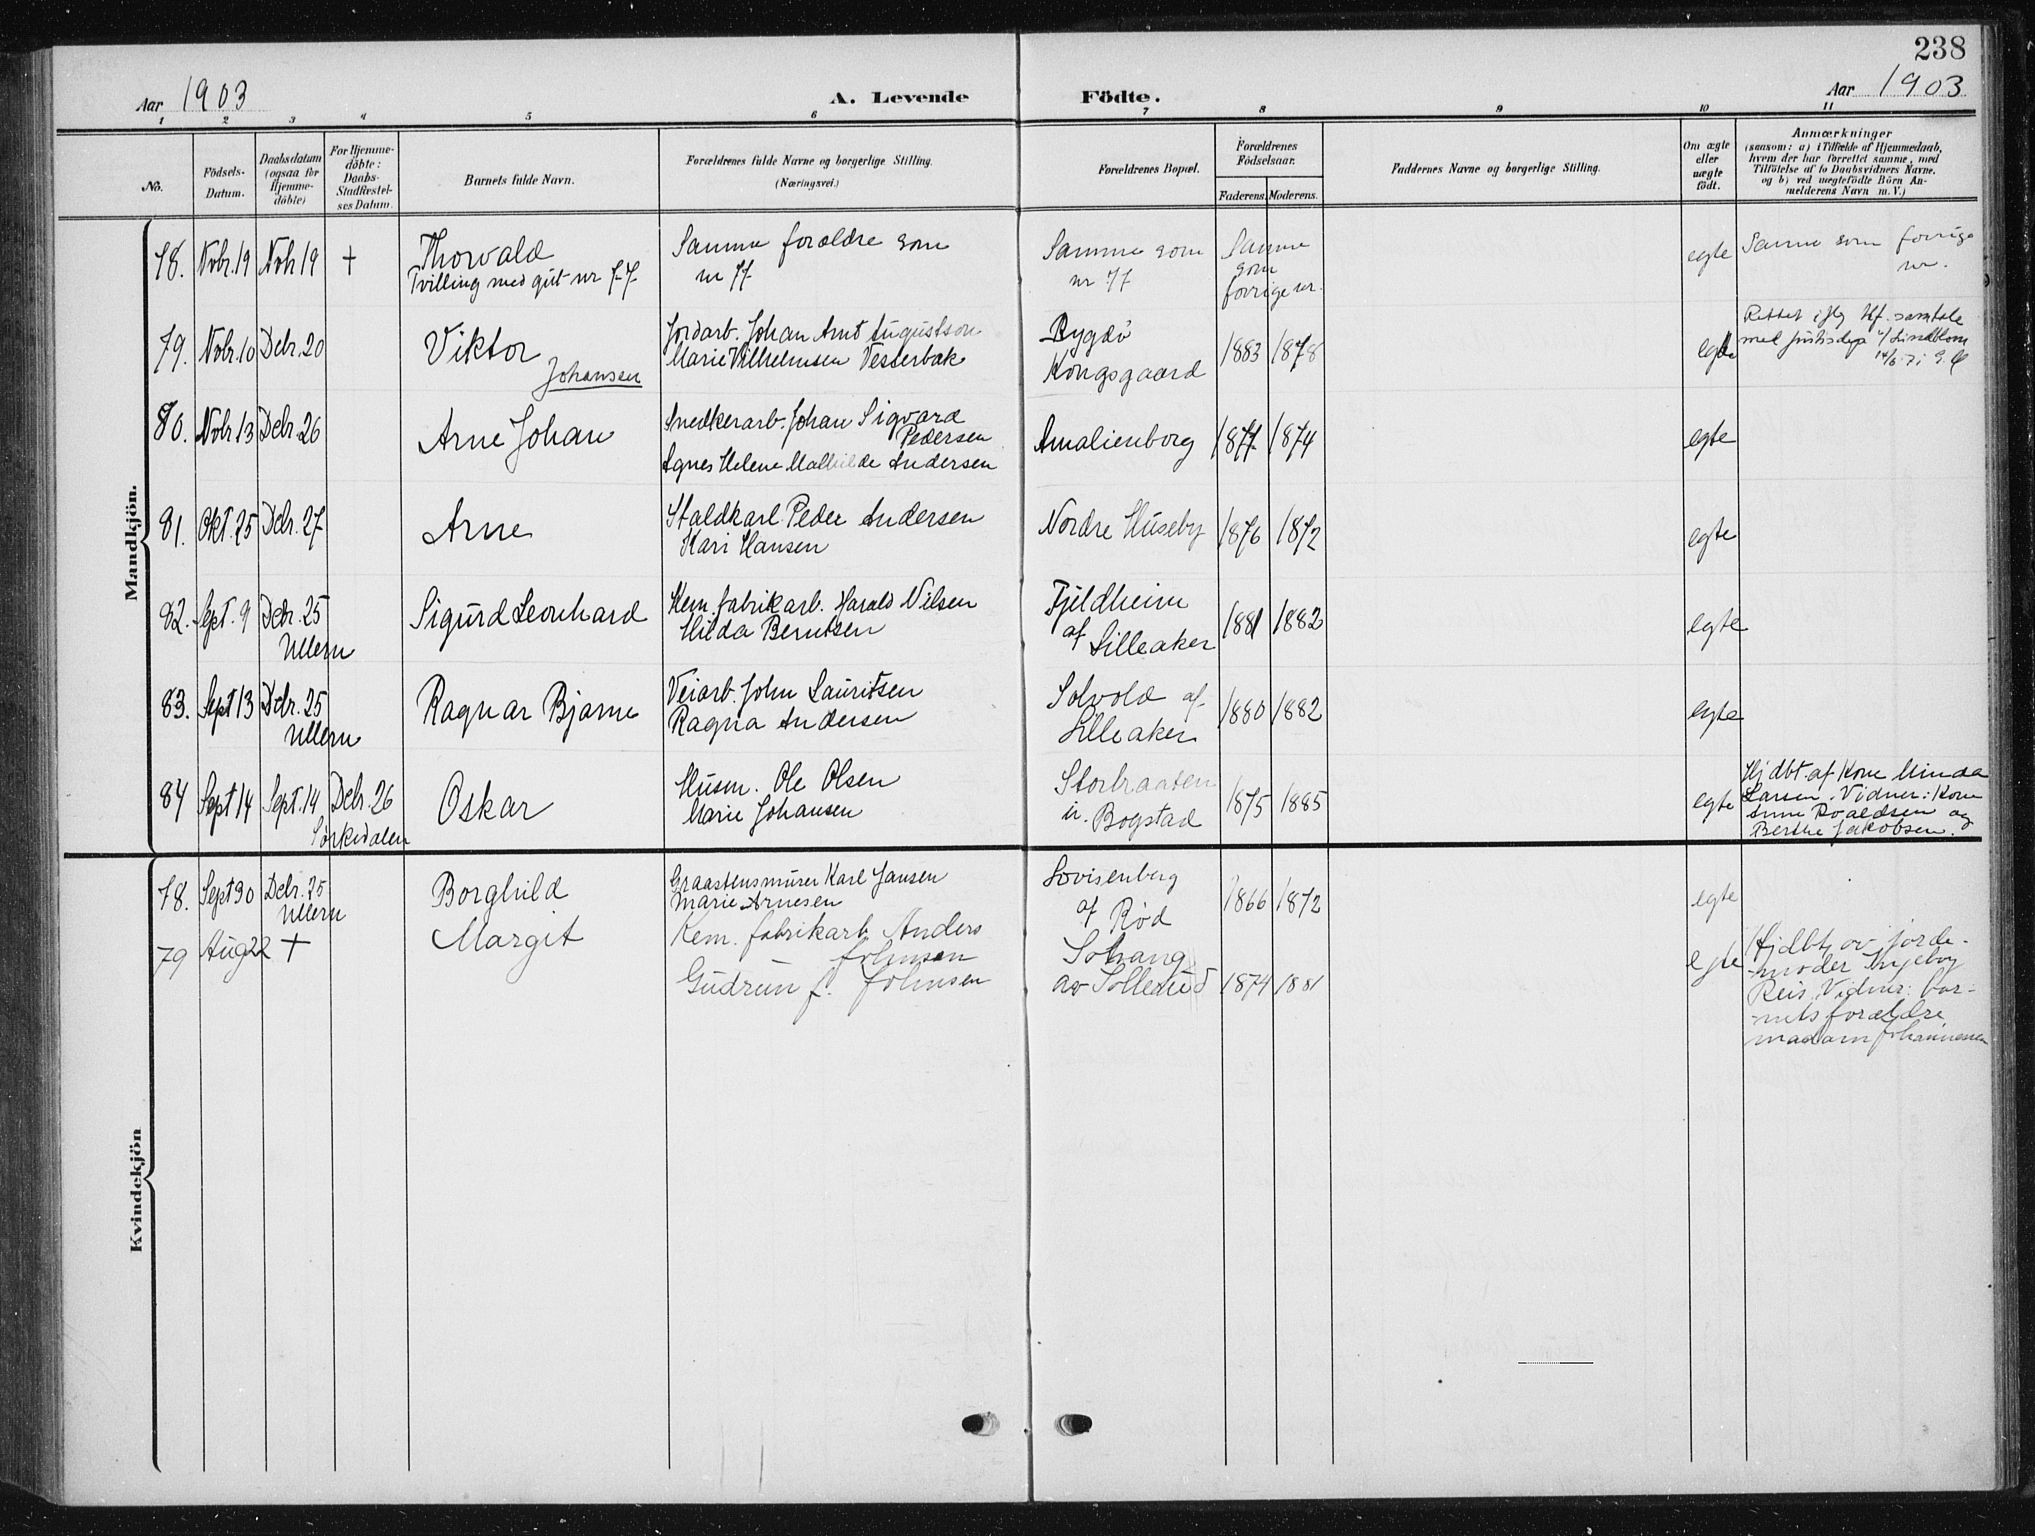 238
Aar 1903
A. Levende
Födte.
Aar 1903
1 2 3 4 5 6 7 8 9 10 11
No.
Födsels-
Datum.
Daabsdatum
(ogsaa for
Hjemme-
döbte)
For Hjemme-
döbte:
Daabs-
Stadfæstel-
ses Datum.
Barnets fulde Navn.
Forældrenes fulde Navne og borgerlige Stilling.
(Næringsvei.)
Forældrenes Bopæl.
Forældrenes
Födselsaar.
Faderens. Moderens.
Faddernes Navne og borgerlige Stilling.
Om ægte
eller
uægte
födt.
Anmærkninger
(saasom: a) i Tilfælde af Hjemmedaab,
hvem der har forrettet samme, med
Tilföielse af to Daabsvidners Navne.
og b) ved uægtefödte Börn An-
melderens Navn m. V.)
Mandkjön.
78. Nvbr. 19 Nvbr 19 +
Thorvald
Tvilling med gut nr 77
Samme forældre som
nr 77
Samme som
nr 77
Samme
som
forrige nr.
egte
Samme som forrige
nr.
79. Nvbr. 10 Debr. 20
Viktor
Johansen
Jordarb. Johan Arnt Augustson
Marie Vilhelmsen Vesterbak
Bygdö
Kongsgaard
1883 1878
egte
Rettet iflg tlf. samtale
med justisdep v/ Lindblom
80. Nvbr. 13 Debr. 26
Arne Johan
Snedkerarb. Johan Sigvard
Pedersen
Agnes Helene Mathilde Andersen
Amalienborg
1877 1874
egte
81. Okt. 25 Debr. 27
Arne
Staldkarl Peder Andersen
Kari Hansen
Nordre Huseby
1876 1872
egte
82. Sept. 9 Debr. 25
Ullern
Sigurd Leonhard
Kem. fabrikarb. Harald Nilsen
Hilda Berntsen
Fjeldheim
af Lilleaker
1881 1882
egte
83. Sept 13 Debr. 25
Ullern
Ragnar Bjarne
Veiarb. John Lauritsen
Ragna Andersen
Solvold af
Lilleaker
1880 1882
egte
84 Sept 14 Sept. 14 Debr. 26
Sørkedalen
Oskar
Husm. Ole Olsen
Marie Johansen
Storbraaten
u. Bogstad
1875 1885
egte
Hjdbt. af Kone Minda
Larsen. Vidner: Kone
Roaldsen og
Berthe Jakobsen.
Kvindekjön
78. Sept 30 Debr. 25
Ullern
Borghild
Graastensmurer Karl Jansen
Marie Arnesen
Lovisenberg
af Rød
1866 1872
egte
79 Aug 22 +
Margit
Kem. fabrikarb. Anders
Johnsen
Gudrun f. Johnsen
Solvang
av Sollerud
1874 1881
egte
Hjdbt. av jorde-
moder Ingeborg
Reis. Vidner: bar-
nets forældre
madam Johannesen